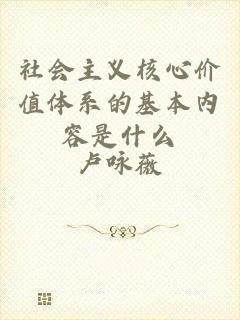 社会主义核心价
值体系的基本内
容是什么
卢咏薇